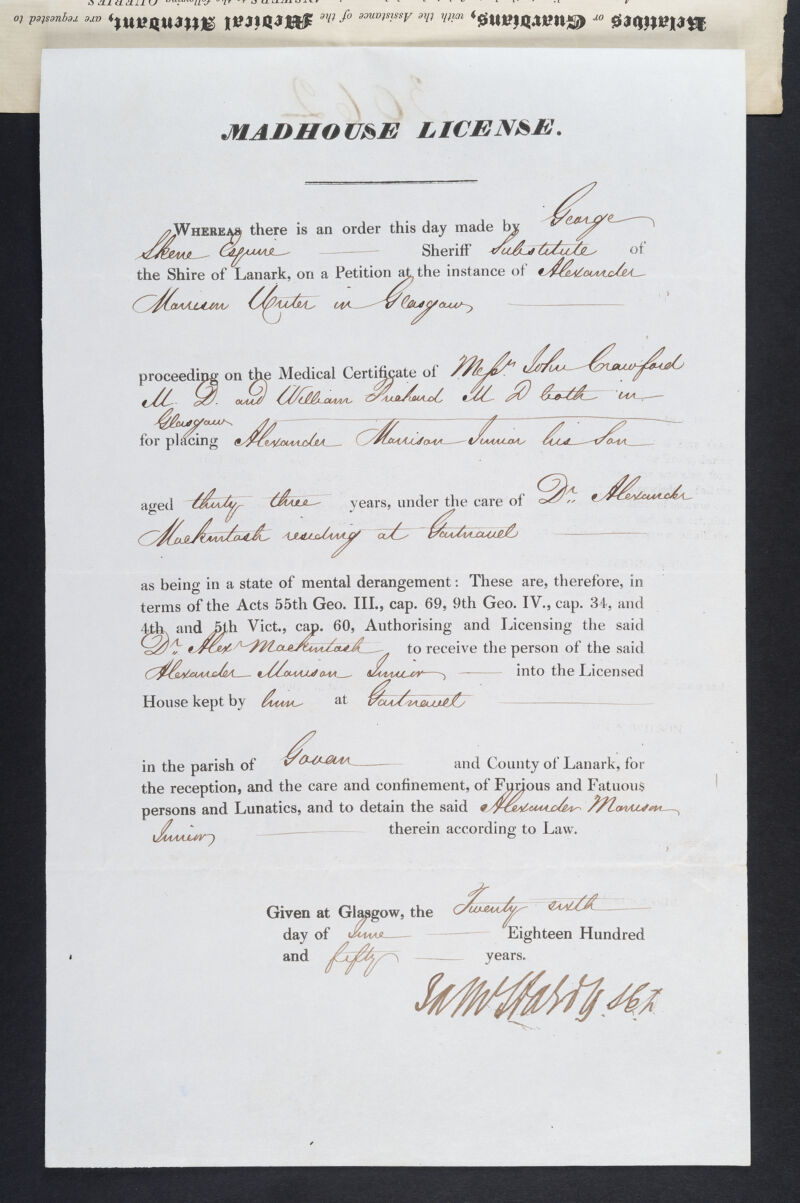 Relatives or Guardians, with the Assistance of the Medical Attendant, are requested to
3062
MADHOUSE LICENSE.
WHEREAS there is an order this day made by George
Skene Esquire Sheriff Substitute of
the Shire of Lanark, on a Petition at the instance of Alexander
Morrison Writer in Glasgow
proceeding on the Medical Certificate of Messrs John Crawford
M. D. and William Prichard M D both in
Glasgow
for placing Alexander Morrison Junior his Son
aged thirty three years, under the care of Dr. Alexander
Mackintosh residing at Gartnavel
as being in a state of mental derangement: These are, therefore, in
terms of the Acts 55th Geo. III., cap. 69, 9th Geo. IV., cap. 34, and
4th and 5th Vict., cap. 60, Authorising and Licensing the said
Dr. Alexr Mackintosh to receive the person of the said
Alexander Morrison Junior into the Licensed
House kept by him at Gartnavel
in the parish of Govan and County of Lanark, for
the reception, and the care and confinement, of Furious and Fatuous
persons and Lunatics, and to detain the said Alexander Morrison
Junior therein according to Law.
Given at Glasgow, the Twenty sixth
day of June Eighteen Hundred
and fifty years.